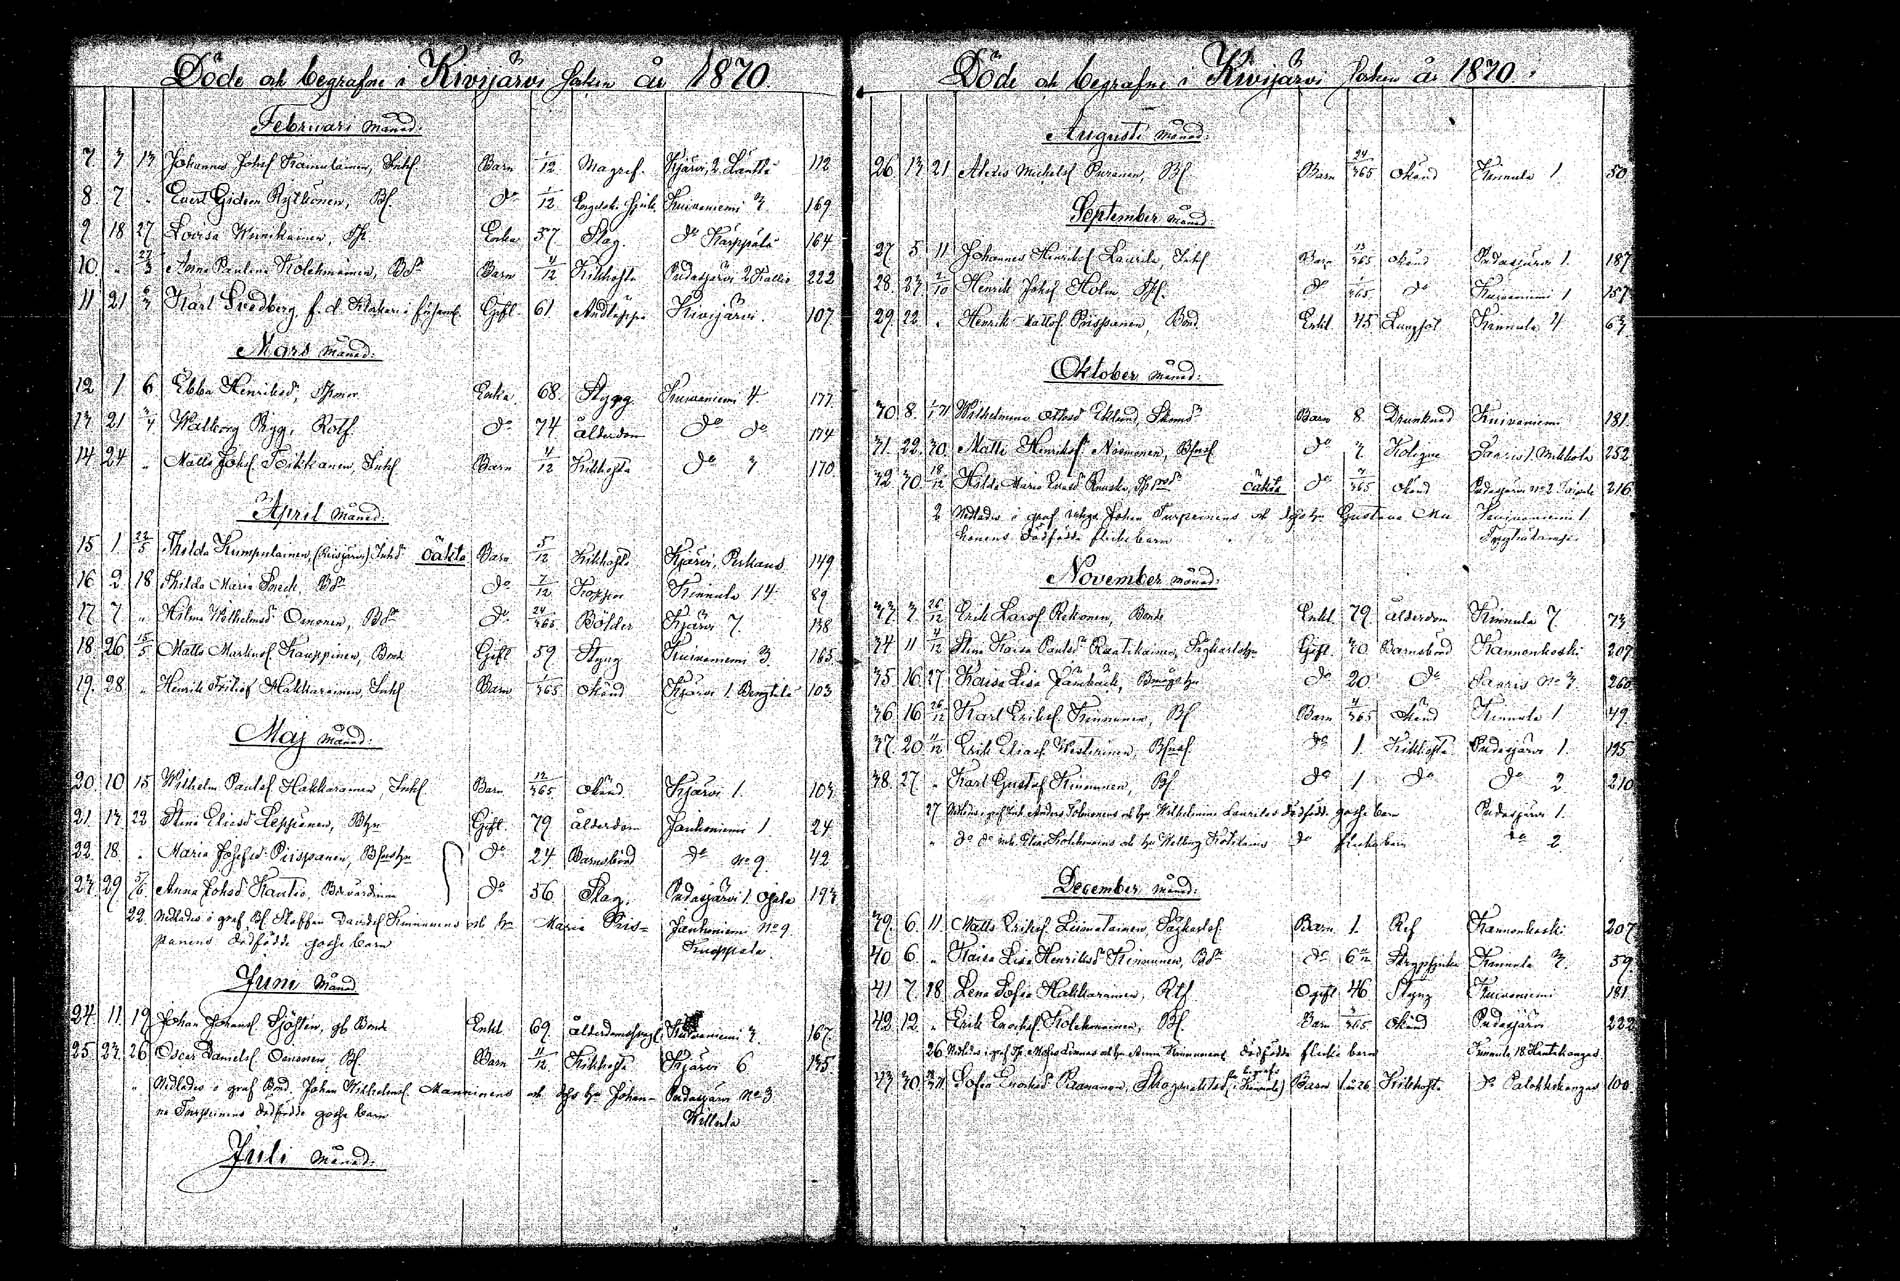 Döde och begrafne i Kivijärvi socken år 1870.
Februari månad:
7. 3 13 Johannes Johsf Kainulainen, Inhs Barn 1/12 Magref. Kjärvi, 2. Länttä 112
8 7 " Evert Gideon Rytkönen, Bs d:o 1/12 Engelska sjuk. Kuivaniemi 3 169
9. 18 27 Lovisa Minnkainen, Enka 57 Slag. d:o Karppala 164
10. " 27/3 Anna Paulina Kolehmainen, Bd:r Barn 4/12 Kikhosta Pudasjärvi 2 Kallio 222
11 21 6/3 Karl Svedberg, f. d. Klockare i församl. Gift. 61 Andtäppa Kivijärvi. 107.
Mars månad:
12. 1 6. Ebba Henriksd, Enka. 68. Stygg. Kuivaniemi 4 177.
13 21 3/4 Walborg Pigg, Rotf. d:o 74 ålderdom d:o d:o 174
14 24 " Matts Johsf Inhs Barn 4/12 Kikhosta d:o 3 170.
April månad:
15 1 22/5 Thilda Kumpulainen, Inhd oäkta Barn 5/12 Kikhosta Kjärvi, Purkans 149
16 2 18 Thilda Maria Bd:r d:o 7/12 Koppor Kinnula 14 89.
17 7 " Hilma Wilhelmsd Oinonen, Bd:r d:o 24/365 Bölder Kjärvi 7. 138
18. 26 15/5 Matts Markusf Kauppinen, Bonde Gift 59 Styng Kuivaniemi 3 165.
19. 28. " Henrik Fritiof Hakkarainen, Inhs Barn 1/365 okänd Kjärvi 1. Bengtila 103
Maj månad:
20. 10 15 Wilhelm Paulsf Hakkarainen Inhs Barn 12/365 okänd Kjärvi 1. 103.
21. 13 22 Stina Eliasd Leppänen, Bhu Gift. 79 ålderdom Jankoniemi 1. 24
22. 18. " Maria Josefsd Piispanen, d:o 24 Barnsbörd d:o No 9. 42
23. 29 5/6 Anna Johsd Kautio, d:o 56 Slag. Pudasjärvi 1. Ojala 193
22. Nedlades i graf Bs Staffan Davidsf Kinnunens och hu Maria Piis= Jankoniemi No 9
panens dödfödde gosse barn Knoppala.
Juni månad
24. 11. 19 Johan Johansf Sjösten, Bonde Enkl. 69. Kuivaniemi 3. 167.
25. 23. 26 Oscar Danielsf Oinonen, Bs. Barn 11/12 Kikhosta Kjärvi 6 135.
" Nedlades i graf Bond. Johan Wilhelmsf. Manninens och dess hu Johan= Pudasjärvi No 3
na Turpeinens dödfödde gosse barn Willula
Juli månad:
Döde och begrafne i Kivijärvi socken år 1870.
Augusti månad:
26 13 21 Alexis Mickelsf Puranen, Bs Barn 24/365 okänd Kinnula 1 50
September månad:
27 5 11 Johannes Henriksf Laurila, Inhs Barn 13/365 okänd Pudasjärvi 1. 187
28. 23. 2/10 Henrik Johsf Holm d:o 1/365 d:o Kuivaniemi 1 157
29. 22. " Henrik Mattsf. Piispanen, Bond. Enkl. 45 Lungsot Kinnula 4 63
Oktober månad:
30. 8. Wilhelmina Ottosd Eklund, Barn 8 Drunknad Kuivaniemi 181.
31. 22. 30. Matti Henriksf Noronen, d:o 3. Kolique Saaris 1. Mikkola 252
32 30. 18/12 Hilda Maria oäkta d:o 3/365 okänd Pudasjärvi No 2 216
2 Nedlades i graf Johan Turpeinens och dess hu Gustava Ma Kuivaniemi 1
honens dödfödde flicke barn
November månad:
33. 3 26/12 Erik Larsf Rekonen, Bonde Enkl. 79. ålderdom Kinnula 7. 73
34 11 4/12 Stina Kaisa Paulsd Raatikainen, Gift 30. Barnsbörd Kannonkoski 207
35 16 27 Kaisa Lisa Lämbäck, d:o 20 d:o Saaris No 3. 260
36. 16 26/12 Karl Eriksf. Kinnunen, Bs Barn 4/365 okänd Kinnula 1 49.
37. 20. 11/12 Erik Eliasf Westerinen, d:o 1. Kikhosta Pudasjärvi 1. 195
38. 27 " Karl Gustaf Kinnunen, Bs d:o 1 d:o d:o 2 210
27 Nedlades i graf Inh. Anders Tolmonens och hu Wilhelmina Laurilas dödfödde gosse barn Pudasjärvi 1.
" d:o d:o inh. Elias Kolehmainens och hu Walborg d:o flicke barn d:o 2
December månad:
39. 6. 11. Matts Eriksf. Leinulainen, Barn 1. Ref Kannonkoski 207
40 6. " Kaisa Lisa Henriksd Kinnunen, Bd:r d:o Strypsjuka Kinnula 3. 59.
41 7. 18 Lena Sofia Hakkarainen, Rtf. Ogift 46 Styng Kuivaniemi 181
42. 12. " Erik Enoksf Kolehmainen, Bs. Barn 3/365 okänd Pudasjärvi 222
26 Nedlades i graf och hu Anna Kinnunens dödfödde flicke barn Kinnula 18 Hautakangas
43 30. Sofia Enoksd Paananen, Barn Kikhosta d:o Palokkakangas 100.